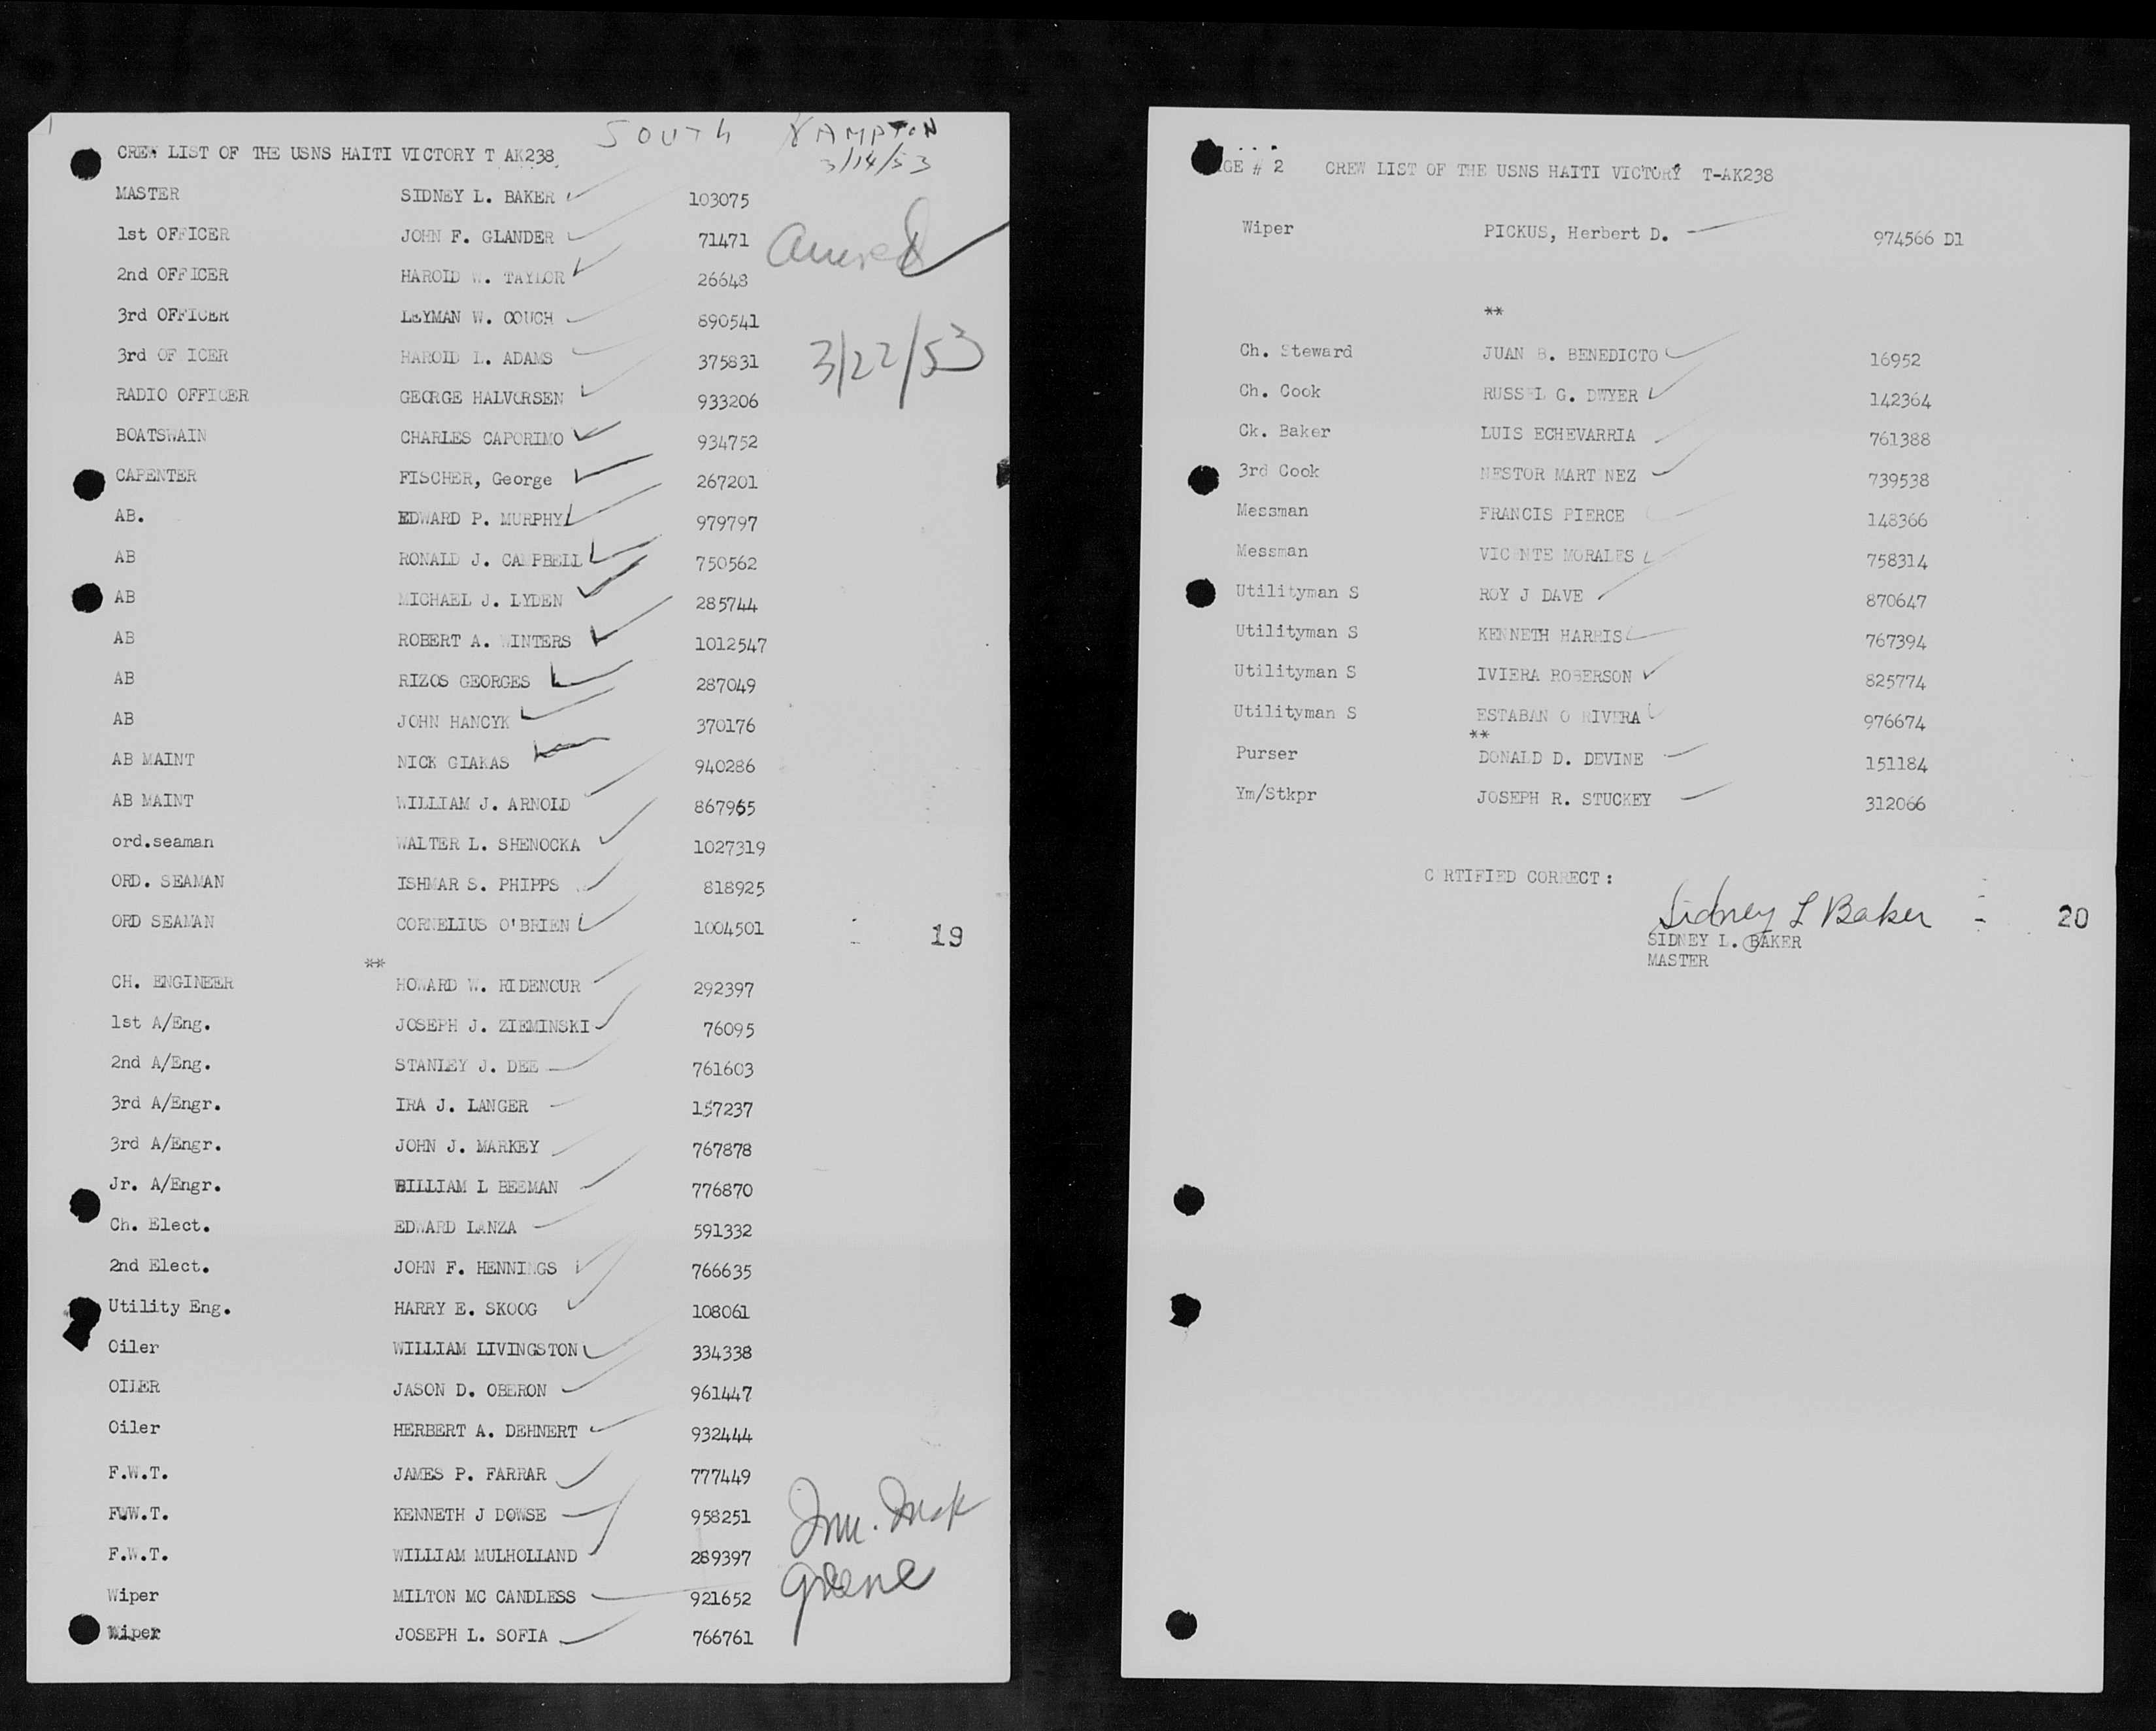 SOUTH HAMPTON
3/14/53
CREW LIST OF THE USNS HAITI VICTORY T AK238
MASTER SIDNEY L. BAKER 103075
1st OFFICER JOHN F. GLANDER 71471
2nd OFFICER HAROLD W. TAYLOR 26648
3rd OFFICER LEYMAN W. COUCH 890541
3rd OF ICER HAROLD L. ADAMS 375831
RADIO OFFICER GEORGE HALVORSEN 933206
BOATSWAIN CHARLES CAPORIMO 934752
CAPENTER FISCHER, George 267201
AB. EDWARD P. MURPHY 979797
AB RONALD J. CAMPBELL 750562
AB MICHAEL J. LYDEN 285744
AB ROBERT A. WINTERS 1012547
AB RIZOS GEORGES 287049
AB JOHN HANCYK 370176
AB MAINT NICK GIAKAS 940286
AB MAINT WILLIAM J. ARNOLD 867965
ord.seaman WALTER L. SHENOCKA 1027319
ORD. SEAMAN ISHMAR S. PHIPPS 818925
ORD SEAMAN CORNELIUS O'BRIEN 1004501
19
**
CH. ENGINEER HOWARD W. RIDENOUR 292397
1st A/Eng. JOSEPH J. ZIEMINSKI 76095
2nd A/Eng. STANLEY J. DEE 761603
3rd A/Engr. IRA J. LANGER 157237
3rd A/Engr. JOHN J. MARKEY 767878
Jr. A/Engr. WILLIAM L BEEMAN 776870
Ch. Elect. EDWARD LANZA 591332
2nd Elect. JOHN F. HENNINGS 766635
Utility Eng. HARRY E. SKOOG 108061
Oiler WILLIAM LIVINGSTON 334338
OILER JASON D. OBERON 961447
Oiler HERBERT A. DEHNERT 932444
F.W.T. JAMES P. FARRAR 777449
FWW.T. KENNETH J DOWSE 958251
F.W.T. WILLIAM MULHOLLAND 289397
Wiper MILTON MC CANDLESS 921652
Wiper JOSEPH L. SOFIA 766761
3/22/53
Greene
GE # 2 CREW LIST OF THE USNS HAITI VICTORY T-AK238
Wiper PICKUS, Herbert D. 974566 D1
**
Ch. Steward JUAN B. BENEDICTO 16952
Ch. Cook RUSSEL G. DWYER 142364
Ck. Baker LUIS ECHEVARRIA 761388
3rd Cook NESTOR MARTINEZ 739538
Messman FRANCIS PIERCE 148366
Messman VICENTE MORALES 758314
Utilityman S ROY J DAVE 870647
Utilityman S KENNETH HARRIS 767394
Utilityman S IVIERA ROBERSON 825774
Utilityman S ESTABAN O RIVERA 976674
**
Purser DONALD D. DEVINE 151184
Ym/Stkpr JOSEPH R. STUCKEY 312066
C RTIFIED CORRECT:
Sidney L Baker
20
SIDNEY L. BAKER
MASTER